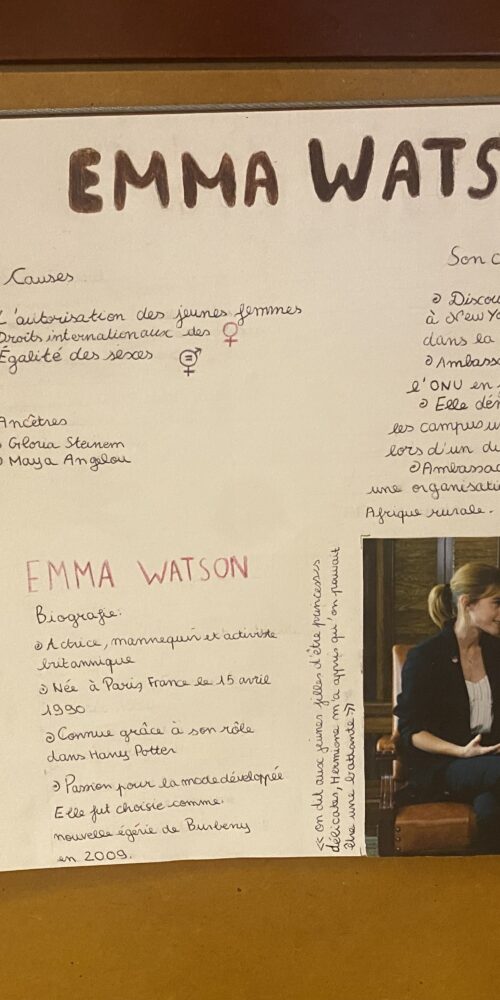 EMMA WATS
Causes
L'autorisation des jeunes femmes
Droits internationaux des ♀
Égalité des sexes
Ancêtres
Gloria Steinem
Maya Angelou
Son c
Discou
à New Yo
dans la
Ambass
l'ONU en
Elle dén
les campus u
lors d'un di
Ambassad
une organisati
Afrique rurale.
EMMA WATSON
Biografie:
Actrice, mannequin et activiste
britannique
Née à Paris, France le 15 avril
1990
Connue grâce à son rôle
dans Harry Potter
Passion pour la mode développée
Elle fut choisie comme
nouvelle égérie de Burberry
en 2009.
<< on dit aux jeunes filles d'être princesses
délicates, Hermione m'a appris qu'on pouvait
être une battante >>